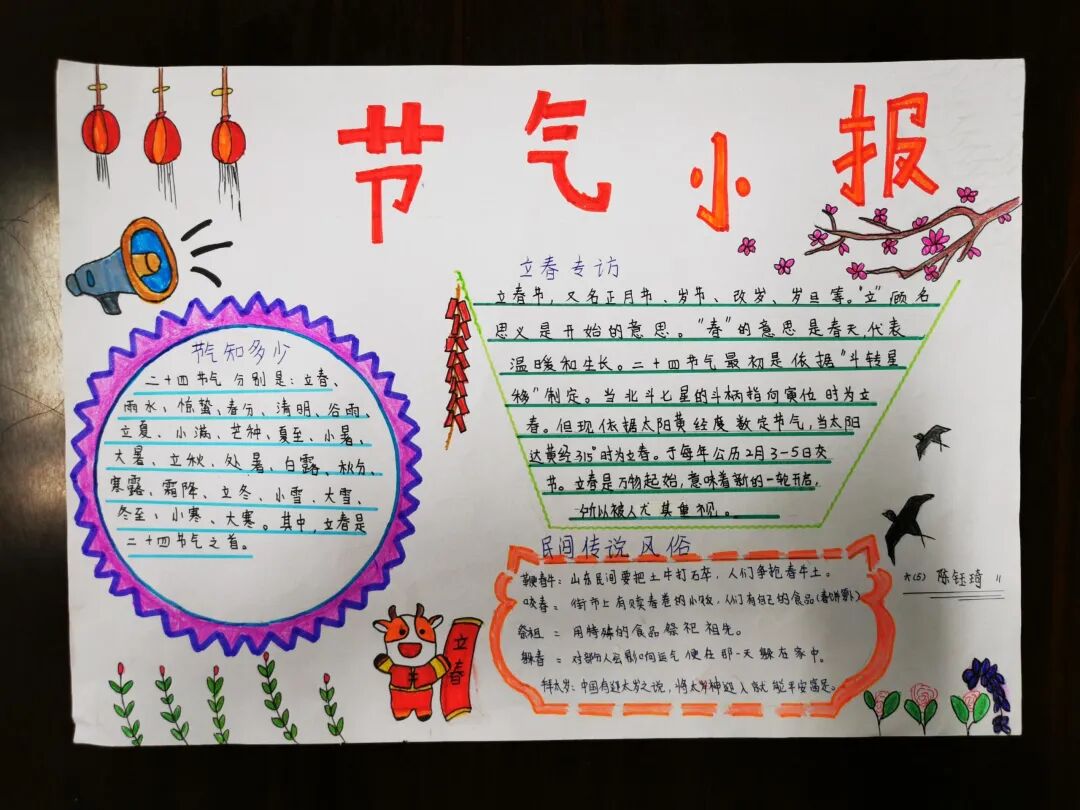 节气小报
节气知多少
二十四节气分别是:立春、
雨水、惊蛰、春分、清明、谷雨、
立夏、小满、芒种、夏至、小暑、
大暑、立秋、处暑、白露、秋分、
寒露、霜降、立冬、小雪、大雪、
冬至、小寒、大寒。其中,立春是
二十四节气之首。
立春专访
立春节,又名正月节、岁节、改岁、岁旦等。“立”顾名
思义是开始的意思。“春”的意思是春天,代表
温暖和生长。二十四节气最初是依据“斗转星
移”制定。当北斗七星的斗柄指向寅位时为立
春。但现依据太阳黄经度数定节气,当太阳
达黄经315°时为立春。于每年公历2月3-5日交
节。立春是万物起始,意味着新的一轮开启,
所以被人尤其重视。
民间传说风俗
鞭春牛:山东民间要把土牛打碎,人们争抢春牛土。
咬春:街市上有卖春卷的小贩,人们有自己的食品(春饼萝卜)
祭祖:用特殊的食品祭祀祖先。
躲春:对部分人会影响运气便在那一天躲在家中。
拜太岁:中国有迎太岁之说,将太岁神迎入就能平安富足。
六(5) 陈钰琦 11
立春